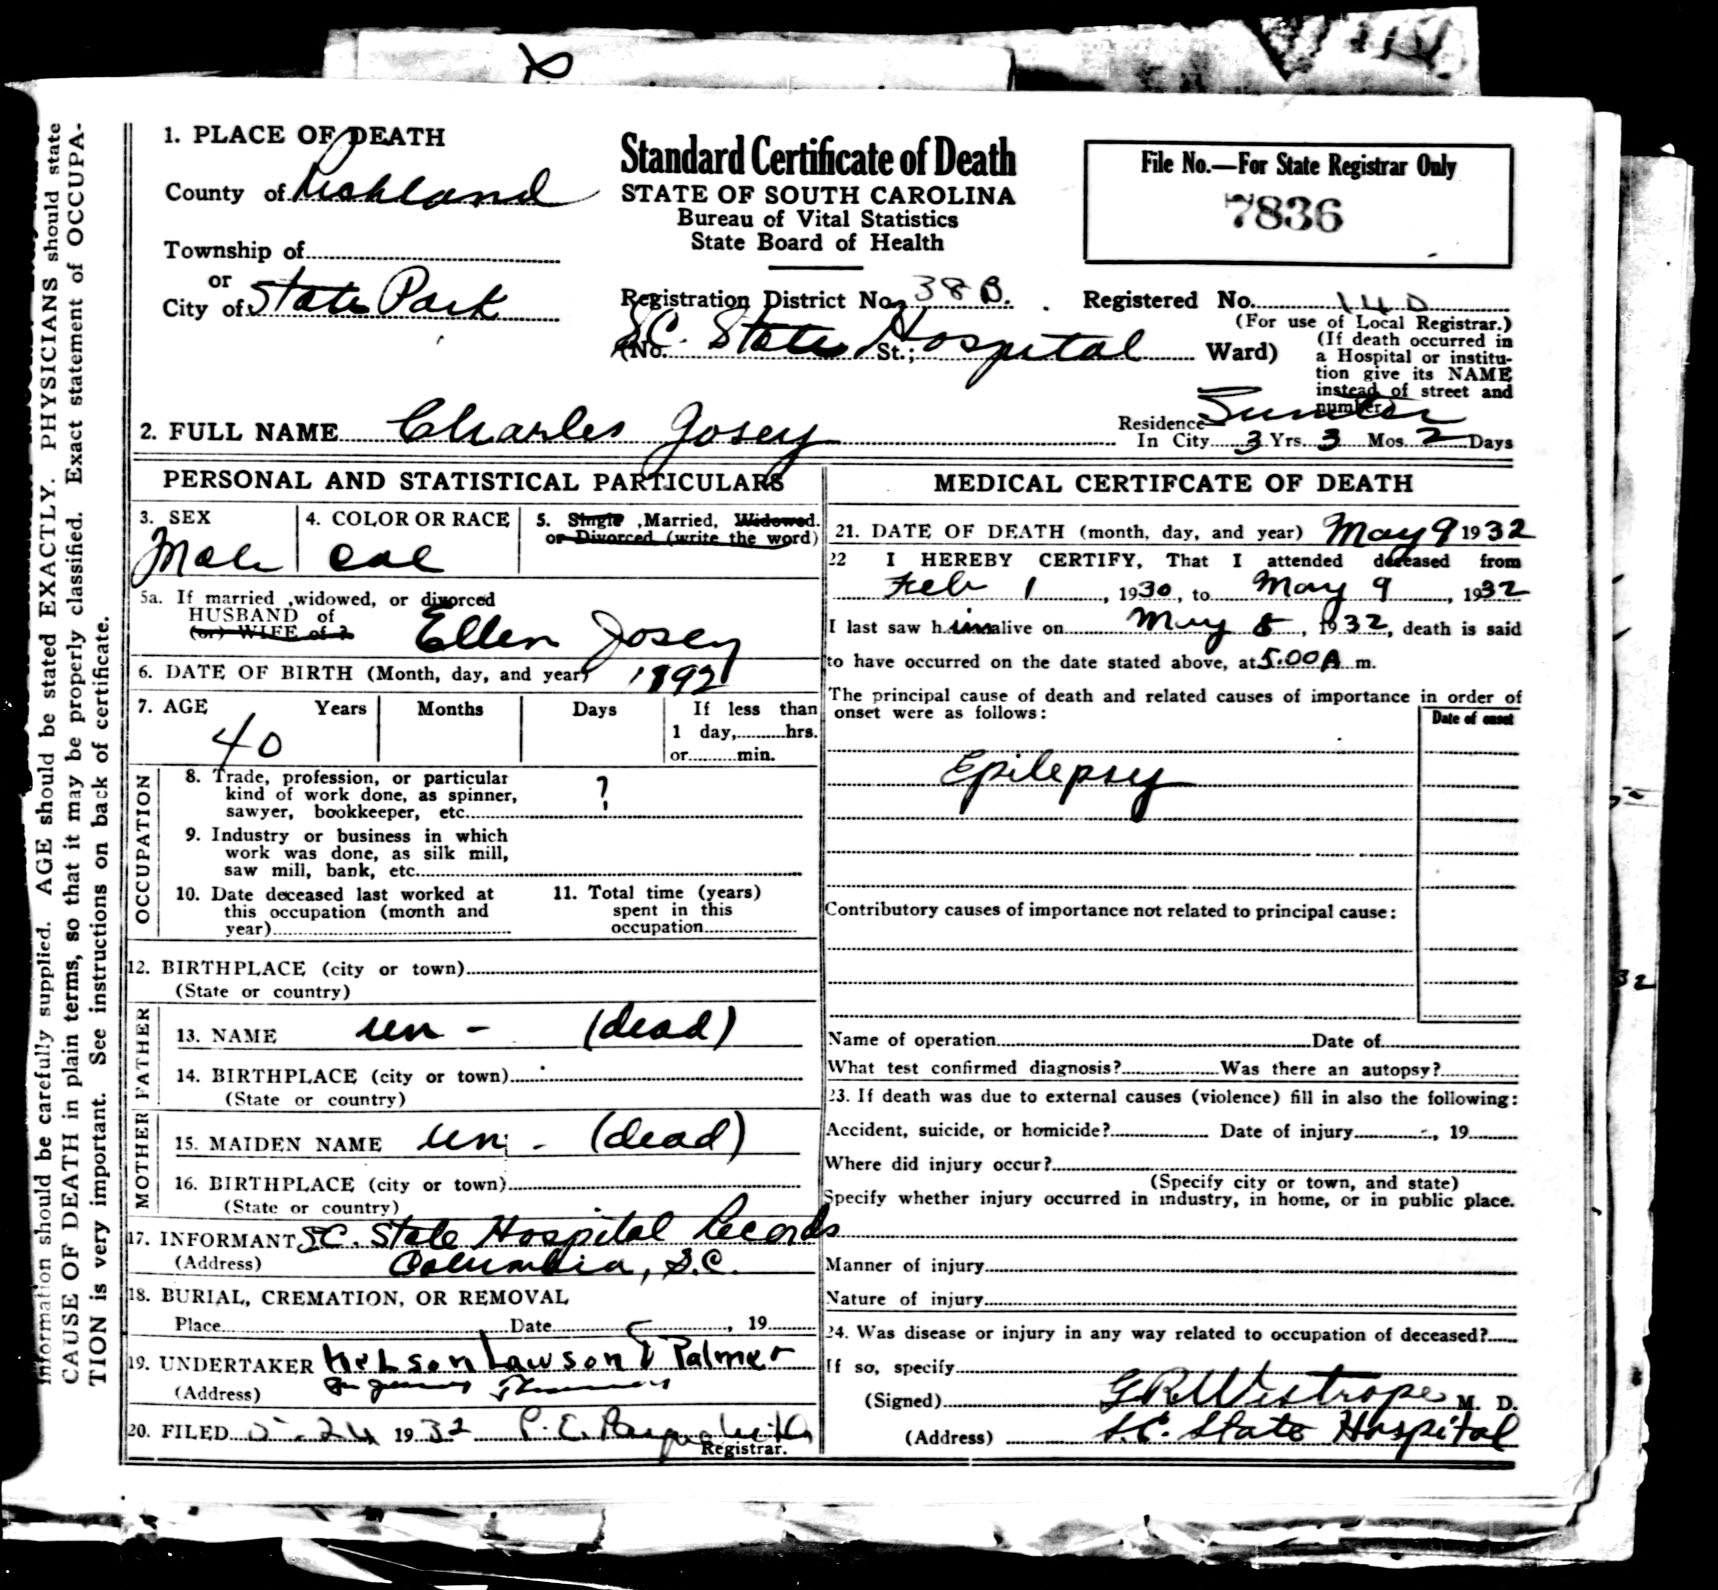 1. PLACE OF DEATH
County of Richland
Township of
or
City of State Park
Standard Certificate of Death
STATE OF SOUTH CAROLINA
Bureau of Vital Statistics
State Board of Health
File No.—For State Registrar Only
7836
Registration District No. 38 B.
Registered No. 140
(For use of Local Registrar.)
(No. S.C. State St.; Hospital Ward)
(If death occurred in
a Hospital or institu-
tion give its NAME
instead of street and
number.)
2. FULL NAME Charles Josey
Residence Sumter
In City 3 Yrs. 3 Mos. 2 Days
PERSONAL AND STATISTICAL PARTICULARS
3. SEX
Male
4. COLOR OR RACE
Col
5. Single ,Married, Widowed.
or Divorced (write the word)
5a. If married ,widowed, or divorced
HUSBAND of
(or) WIFE of
Ellen Josey
6. DATE OF BIRTH (Month, day, and year) 1892
7. AGE Years Months Days If less than
40
1 day,........hrs.
or........min.
OCCUPATION
8. Trade, profession, or particular
kind of work done, as spinner,
sawyer, bookkeeper, etc. ?
9. Industry or business in which
work was done, as silk mill,
saw mill, bank, etc.
10. Date deceased last worked at
this occupation (month and
year)
11. Total time (years)
spent in this
occupation
12. BIRTHPLACE (city or town)
(State or country)
FATHER
13. NAME un - (dead)
14. BIRTHPLACE (city or town)
(State or country)
MOTHER
15. MAIDEN NAME un - (dead)
16. BIRTHPLACE (city or town)
(State or country)
17. INFORMANT S.C. State Hospital Records
(Address) Columbia, S.C.
18. BURIAL, CREMATION, OR REMOVAL
Place Date , 19
19. UNDERTAKER Nelson Lawson & Palmer
(Address)
20. FILED 5-24 1932 P. E.
Registrar.
MEDICAL CERTIFCATE OF DEATH
21. DATE OF DEATH (month, day, and year) May 9 1932
22 I HEREBY CERTIFY, That I attended deceased from
Feb 1, 1930, to May 9, 1932
I last saw h im alive on May 8, 1932, death is said
to have occurred on the date stated above, at 5:00 A m.
The principal cause of death and related causes of importance in order of
onset were as follows:
Date of onset
Epilepsy
Contributory causes of importance not related to principal cause:
Name of operation Date of
What test confirmed diagnosis? Was there an autopsy?
23. If death was due to external causes (violence) fill in also the following:
Accident, suicide, or homicide? Date of injury , 19
Where did injury occur?
(Specify city or town, and state)
Specify whether injury occurred in industry, in home, or in public place.
Manner of injury
Nature of injury
24. Was disease or injury in any way related to occupation of deceased?
If so, specify
(Signed) G R Westrope M. D.
(Address) S.C. State Hospital
information should be carefully supplied. AGE should be stated EXACTLY. PHYSICIANS should state
CAUSE OF DEATH in plain terms, so that it may be properly classified. Exact statement of OCCUPA-
TION is very important. See instructions on back of certificate.